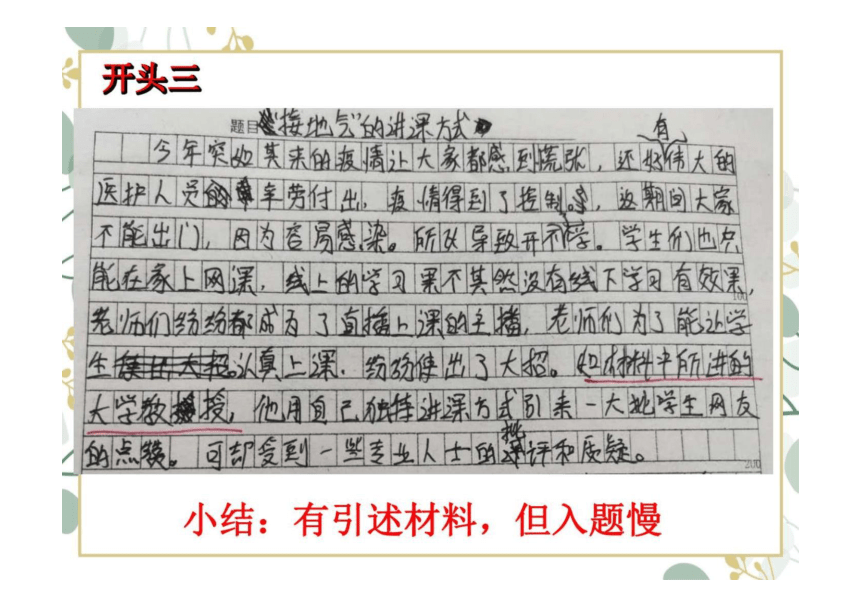 开头三
题目 "接地气"的讲课方式
有
今年突如其来的疫情让大家都感到慌张，还好伟大的
医护人员的辛劳付出，疫情得到了控制。，这期间大家
不能出门，因为容易感染。所以导致开不学。学生们也只
能在家上网课，线上的学习果不其然没有线下学习有效果，
100
老师们纷纷都成为了直播上课的主播，老师们为了能让学
生认真上课，纷纷使出了大招。如材料中所讲的
大学教授，他用自己独特讲课方式引来一大批学生网友
的点赞。可却受到一些专业人士的批评和质疑。
200
小结：有引述材料，但入题慢